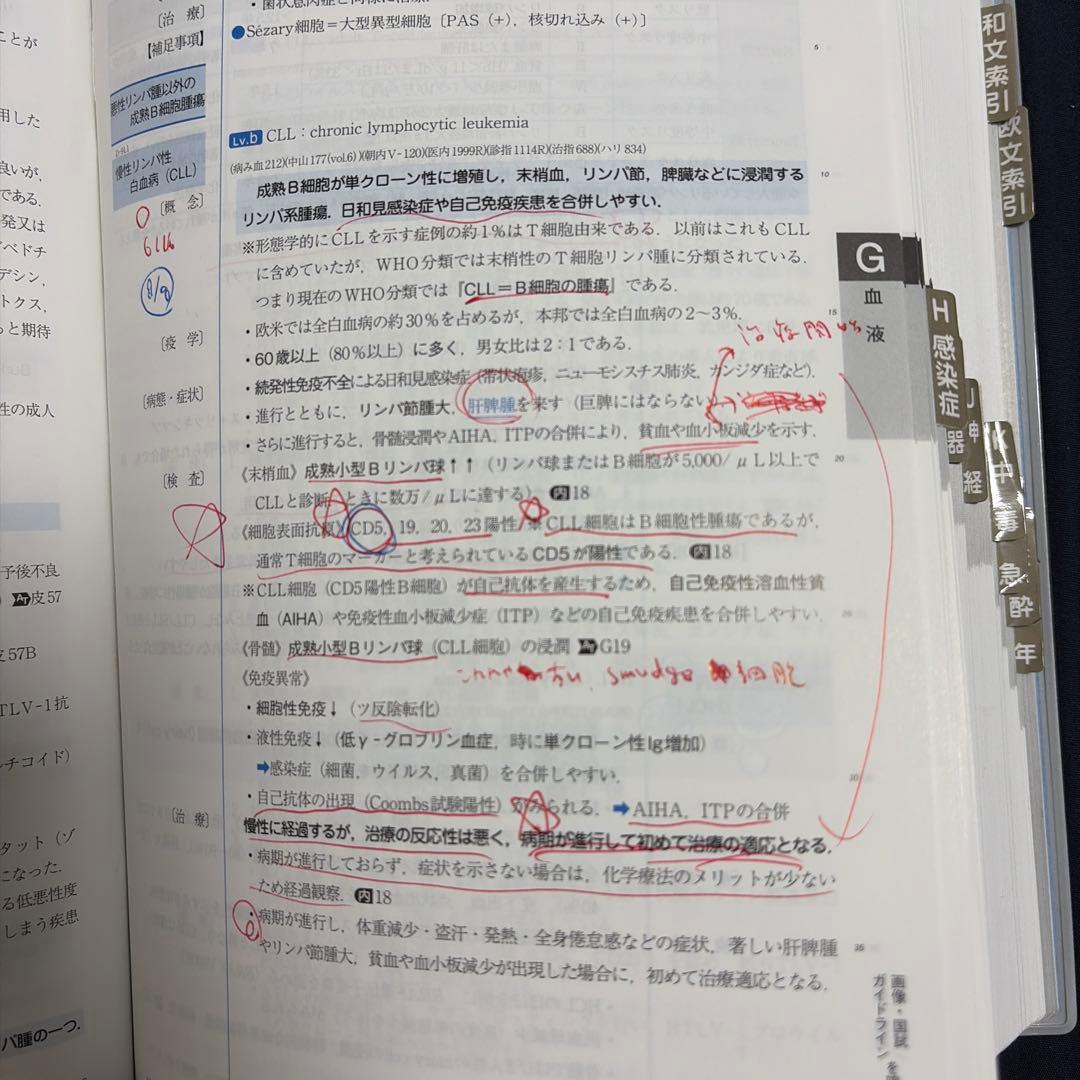 ことが
用した
良いが,
である.
発又は
ベドチ
デシン,
トクス,
っと期待
性の成人
予後不良
皮57
皮57B
TLV-1抗
チコイド)
タット(ゾ
になった.
る低悪性度
しまう疾患
パ腫の一つ.
〔治 療〕
【補足事項】
●Sézary細胞=大型異型細胞〔PAS(+),核切れ込み(+)〕
5
悪性リンパ腫以外の
成熟B細胞腫瘍
慢性リンパ性
白血病(CLL)
Lv.b CLL:chronic lymphocytic leukemia
(病み血212)(中山177(vol.6))(朝内V-120)(医内1999R)(診指1114R)(治指688)(ハリ834)
〔概 念〕
成熟B細胞が単クローン性に増殖し,末梢血,リンパ節,脾臓などに浸潤する
10
リンパ系腫瘍.日和見感染症や自己免疫疾患を合併しやすい.
※形態学的にCLLを示す症例の約1%はT細胞由来である.以前はこれもCLL
に含めていたが,WHO分類では末梢性のT細胞リンパ腫に分類されている.
つまり現在のWHO分類では『CLL=B細胞の腫瘍』である.
〔疫 学〕
・欧米では全白血病の約30%を占めるが,本邦では全白血病の2〜3%.
15
・60歳以上(80%以上)に多く,男女比は2:1である.
〔病態・症状〕
・続発性免疫不全による日和見感染症(帯状疱疹,ニューモシスチス肺炎,カンジダ症など).
・進行とともに,リンパ節腫大,肝脾腫を来す(巨脾にはならない)
・さらに進行すると,骨髄浸潤やAIHA,ITPの合併により,貧血や血小板減少を示す.
〔検 査〕
《末梢血》成熟小型Bリンパ球↑↑(リンパ球またはB細胞が5,000/μL以上で
20
CLLと診断,ときに数万/μLに達する) 内18
《細胞表面抗原》CD5,19,20,23陽性/※CLL細胞はB細胞性腫瘍であるが,
通常T細胞のマーカーと考えられているCD5が陽性である.内18
※CLL細胞(CD5陽性B細胞)が自己抗体を産生するため,自己免疫性溶血性貧
血(AIHA)や免疫性血小板減少症(ITP)などの自己免疫疾患を合併しやすい.
《骨髄》成熟小型Bリンパ球(CLL細胞)の浸潤 G19
《免疫異常》
smudge 細胞
・細胞性免疫↓(ツ反陰転化)
・液性免疫↓(低γ-グロブリン血症,時に単クローン性Ig増加)
➡感染症(細菌,ウイルス,真菌)を合併しやすい.
30
・自己抗体の出現(Coombs試験陽性)がみられる.➡AIHA,ITPの合併
〔治 療〕
慢性に経過するが,治療の反応性は悪く,病期が進行して初めて治療の適応となる.
・病期が進行しておらず,症状を示さない場合は,化学療法のメリットが少ない
ため経過観察.内18
・病期が進行し,体重減少・盗汗・発熱・全身倦怠感などの症状,著しい肝脾腫
35
やリンパ節腫大,貧血や血小板減少が出現した場合に,初めて治療適応となる.
G
血
液
和文索引
欧文索引
H
感染症
J
神経
K
中毒
器
救急
麻酔
年
画像・国試
ガイドライン